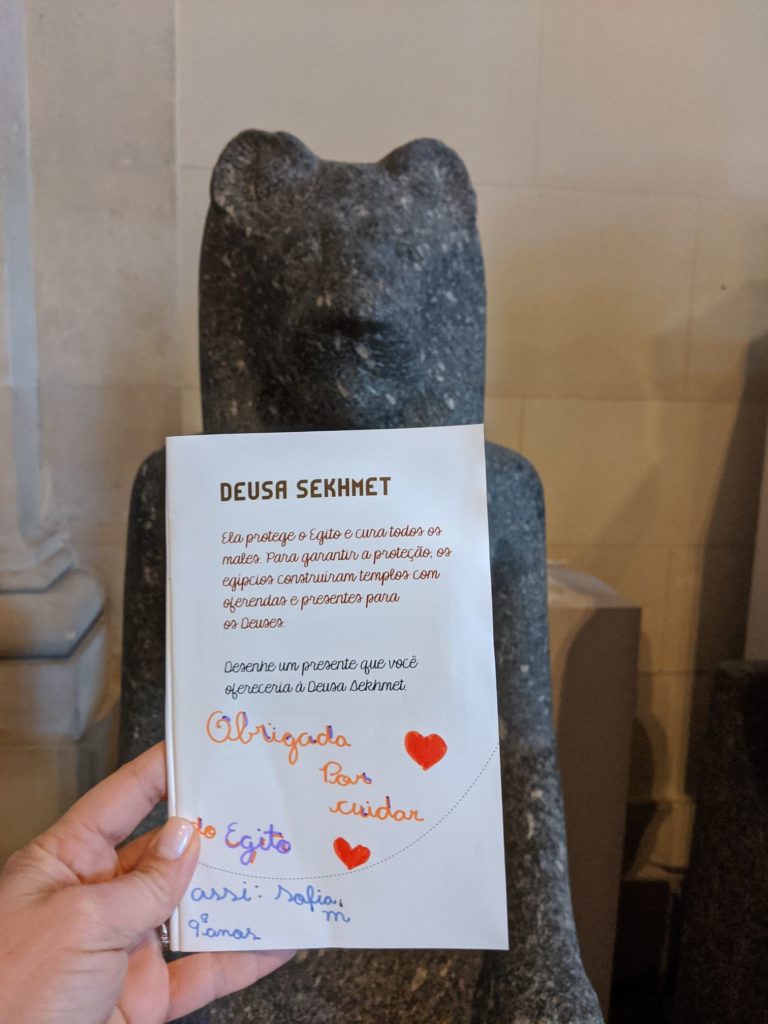 DEUSA SEKHMET
Ela protege o Egito e cura todos os
males. Para garantir a proteção, os
egípcios construíram templos com
oferendas e presentes para
os Deuses.
Desenhe um presente que você
ofereceria à Deusa Sekhmet.
Obrigada
Por
cuidar
do Egito
assi: Sofia.
m
9 anos